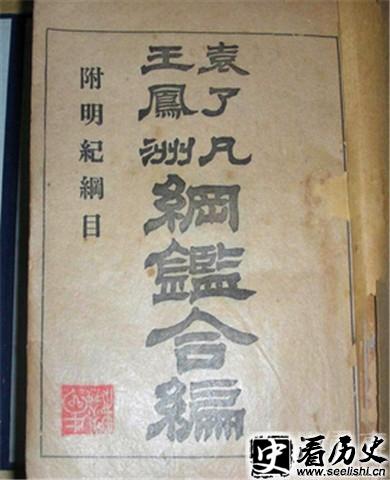 袁了凡
王鳳洲
綱鑑合編
附明紀綱目
史看历史
www.seelishi.cn